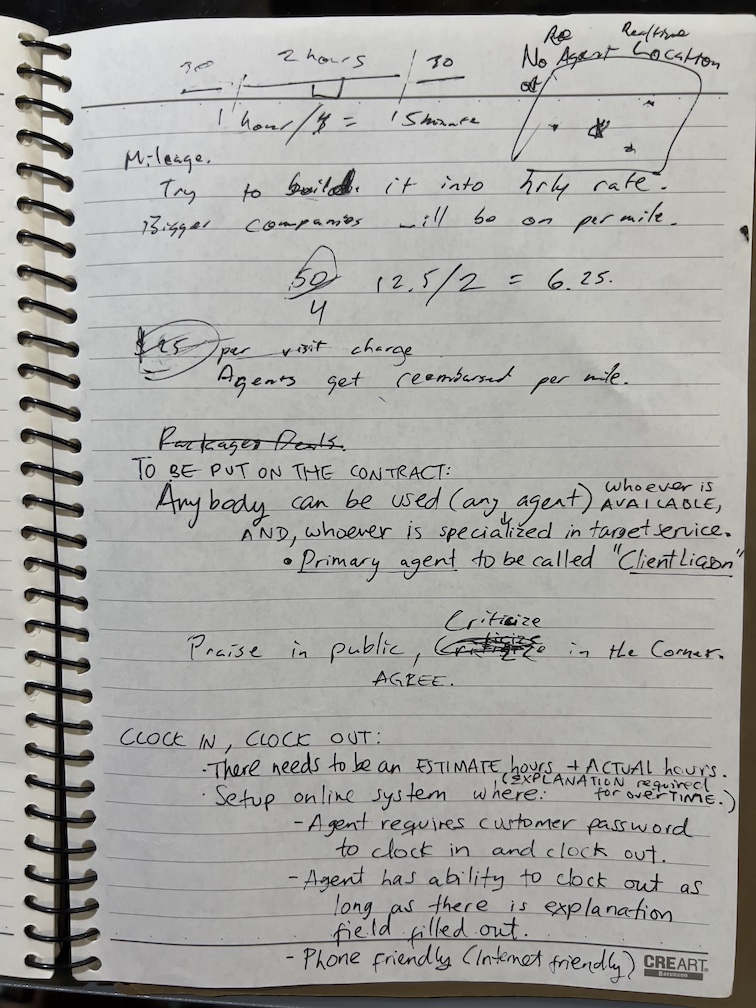 Realtime
30 2 hours 30 No Agent Location
1 hour/$ = 15 minute
Mileage.
Try to build it into hrly rate.
Bigger companies will be on per mile.
50/4 12.5/2 = 6.25.
$25 per visit charge
Agents get reembursed per mile.
Packages Deals.
TO BE PUT ON THE CONTRACT:
Anybody can be used (any agent) whoever is AVAILABLE,
AND, whoever is specialized in target service.
• Primary agent to be called "Client Liason"
Criticize
Praise in public, in the Corner.
AGREE.
CLOCK IN, CLOCK OUT:
· There needs to be an ESTIMATE hours + ACTUAL hours.
(EXPLANATION required for overTIME.)
· Setup online system where:
- Agent requires customer password
to clock in and clock out.
- Agent has ability to clock out as
long as there is explanation
field filled out.
- Phone friendly (Internet friendly)
CREART
Barunson